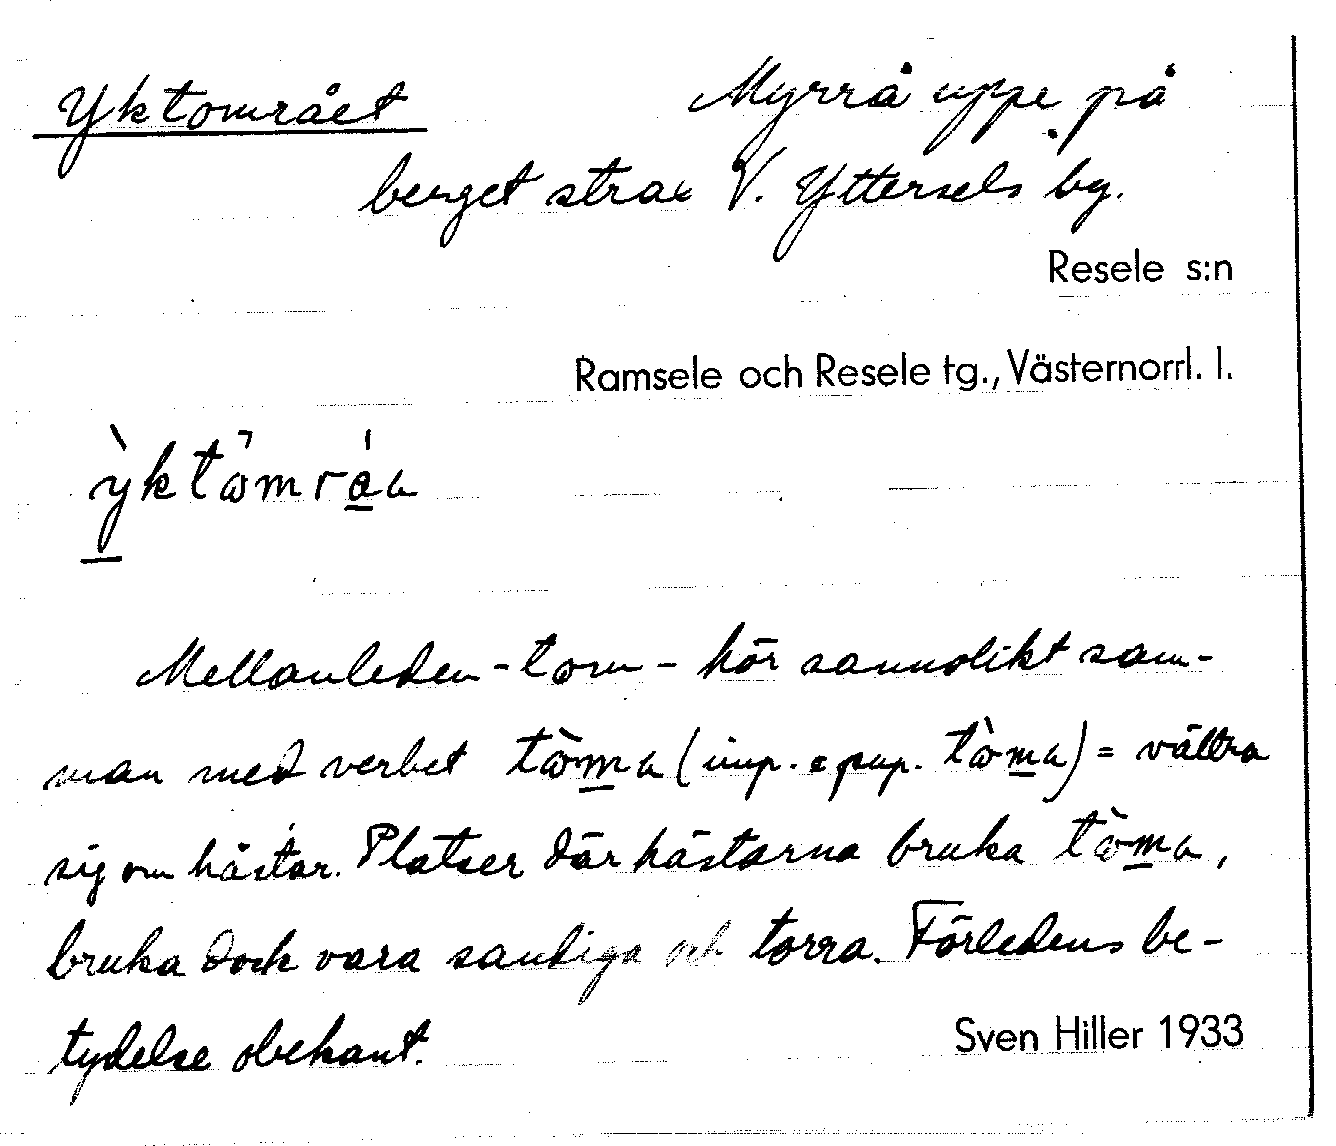 Yktområet Myrrå uppe på
berget strax V. Yttersels by.
Resele s:n
Ramsele och Resele tg., Västernorrl. l.
Mellanleden -tom- hör sannolikt sam-
man med verbet (imp. pup. ) = vältra
sig om hästar. Platser där hästarna bruka
bruka dock vara sandiga och torra. Förledens be-
tydelse obekant.
Sven Hiller 1933